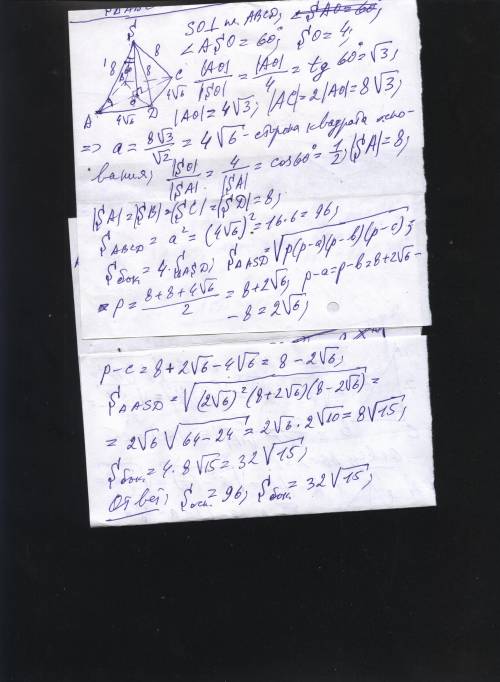 S
8
8
8
B
C
4√6
A
4√6
D
SO⊥ пл. ABCD, ∠SAO = 60°,
∠ASO = 60°, SO = 4;
|AO|/|SO| = |AO|/4 = tg 60° = √3;
|AO| = 4√3; |AC| = 2|AO| = 8√3;
=> a = 8√3/√2 = 4√6 - сторона квадрата осно-
вания; |SO|/|SA| = 4/|SA| = cos60° = 1/2; |SA| = 8;
|SA| = |SB| = |SC| = |SD| = 8;
S ABCD = a² = (4√6)² = 16·6 = 96;
S бок. = 4·S ΔASD; S ΔASD = √p(p-a)(p-b)(p-c);
p = (8+8+4√6)/2 = 8+2√6; p-a = p-b = 8+2√6 -
- 8 = 2√6;
p-c = 8+2√6 - 4√6 = 8-2√6;
S ΔASD = √(2√6)²(8+2√6)(8-2√6) =
= 2√6 √64-24 = 2√6 · 2√10 = 8√15;
S бок. = 4·8√15 = 32√15;
Ответ; S осн. = 96; S бок. = 32√15;